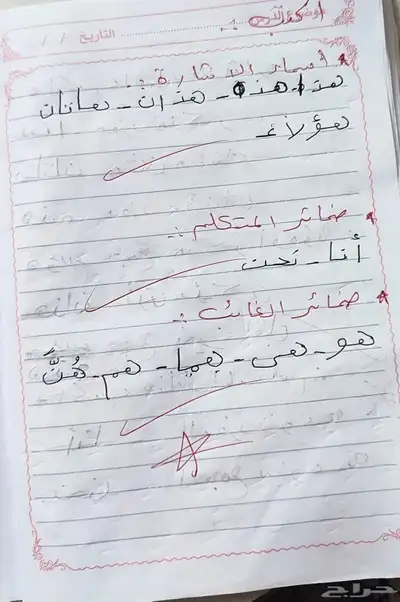 التاريخ / /
* أسماء الإشارة :-
هذا هذه - هذان - هاتان
هؤلاء
* ضمائر المتكلم :-
أنا - نحن
* ضمائر الغائب :-
هو - هي - هما - هم - هُنَّ
حراج